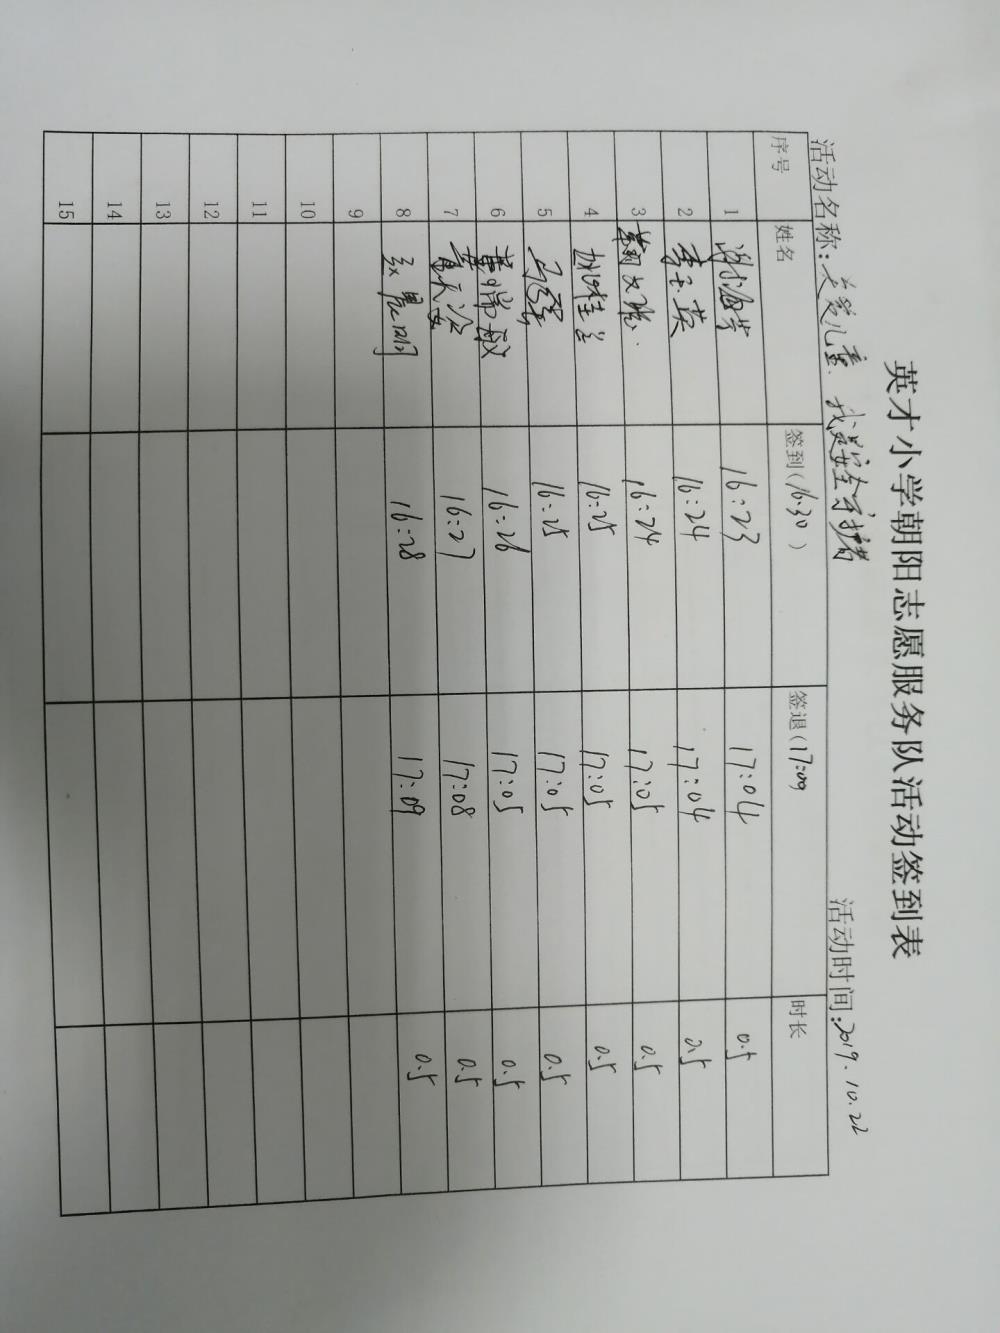 英才小学朝阳志愿服务队活动签到表
活动名称：关爱儿童 我是安全守护者 活动时间：2019.10.22
序号 姓名 签到（16:30） 签退（17:09 时长
1 谢海芳 16:23 17:04 0.5
2 李玉英 16:24 17:04 0.5
3 16:24 17:05 0.5
4 16:25 17:05 0.5
5 16:25 17:05 0.5
6 黄常敏 16:26 17:05 0.5
7 16:27 17:08 0.5
8 16:28 17:09 0.5
9
10
11
12
13
14
15